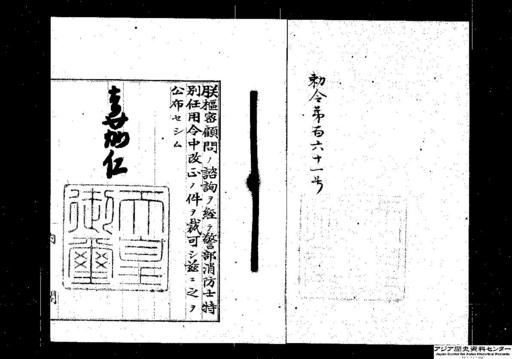 勅令第百六十一号
朕樞密顧問ノ諮詢ヲ経テ警部消防士特
別任用令中改正ノ件ヲ裁可シ茲ニ之ヲ
公布セシム
嘉仁
天皇
御璽
内閣
アジア歴史資料センター
Japan Center for Asian Historical Records